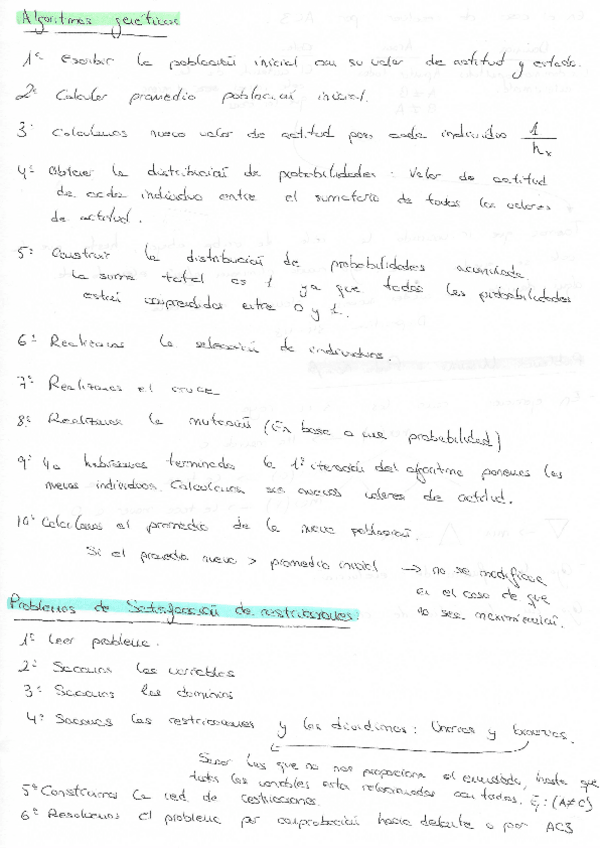 Algoritmos genéticos
1º Escribir la población inicial con su valor de actitud y estado.
2º Calcular promedio población inicial.
3º Calculamos nuevo valor de actitud para cada individuo 1/hx
4º Obtener la distribución de probabilidades: Valor de actitud
de cada individuo entre el sumatorio de todos los valores
de actitud.
5º Construir la distribución de probabilidades acumulada.
La suma total es 1 ya que todas las probabilidades
están comprendidas entre 0 y 1.
6º Realizamos la selección de individuos.
7º Realizamos el cruce
8º Realizamos la mutación (En base a una probabilidad)
9º Ya habríamos terminado la 1ª iteración del algoritmo ponemos los
nuevos individuos. Calculamos sus nuevos valores de actitud.
10º Calculamos el promedio de la nueva población.
Si el promedio nuevo > promedio inicial → no se modifica
en el caso de que
no sea
Problemas de Satisfacción de restricciones.
1º Leer problema.
2º Sacamos las variables
3º Sacamos los dominios
4º Sacamos las restricciones y las dividimos: Unarias y binarias.
Sacar las que no nos proporciona el enunciado, hasta que
todas las variables estén relacionadas con todas. Ej: (A≠C)
5º Construimos la red de restricciones.
6º Resolvemos el problema por comprobación hacia delante o por AC3